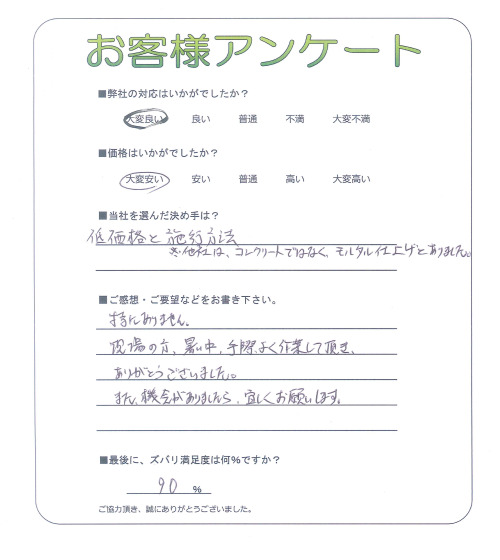 お客様アンケート
■弊社の対応はいかがでしたか？
大変良い 良い 普通 不満 大変不満
■価格はいかがでしたか？
大変安い 安い 普通 高い 大変高い
■当社を選んだ決め手は？
低価格と施行方法
※他社は、コンクリートではなく、モルタル仕上げとありました。
■ご感想・ご要望などをお書き下さい。
特にありません。
現場の方、暑い中、手際よく作業して頂き、
ありがとうございました。
また、機会がありましたら、宜しくお願いします。
■最後に、ズバリ満足度は何％ですか？
90 %
ご協力頂き、誠にありがとうございました。